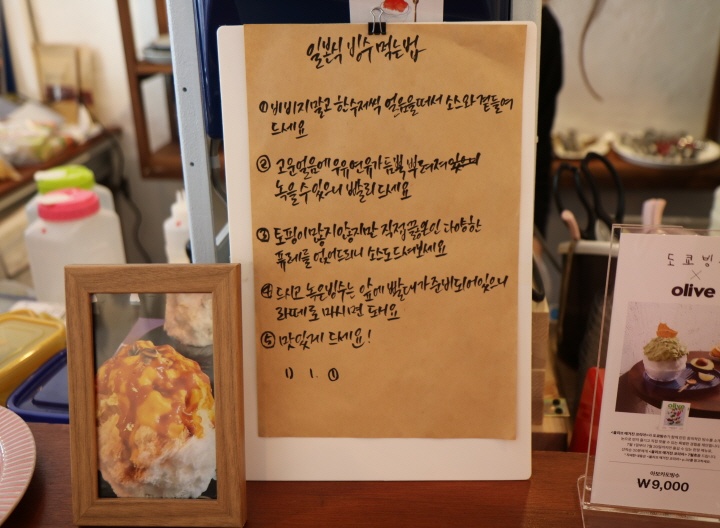 일본식 빙수 먹는법
① 비비지말고 한수저씩 얼음을떠서 소스와 곁들여
드세요
② 고운얼음에 우유연유가듬뿍 뿌려져있으니
녹을수있으니 빨리드세요
③ 토핑이많지않지만 직접끓인 다양한
퓨레를 얹어드리니 소스도드셔보세요
④ 드시고 녹은빙수는 앞에 빨대가 준비되어있으니
라떼로 마시면 돼요
⑤ 맛있게 드세요!
1) 1. ①
도쿄빙
×
olive
아보카도빙수
₩9,000